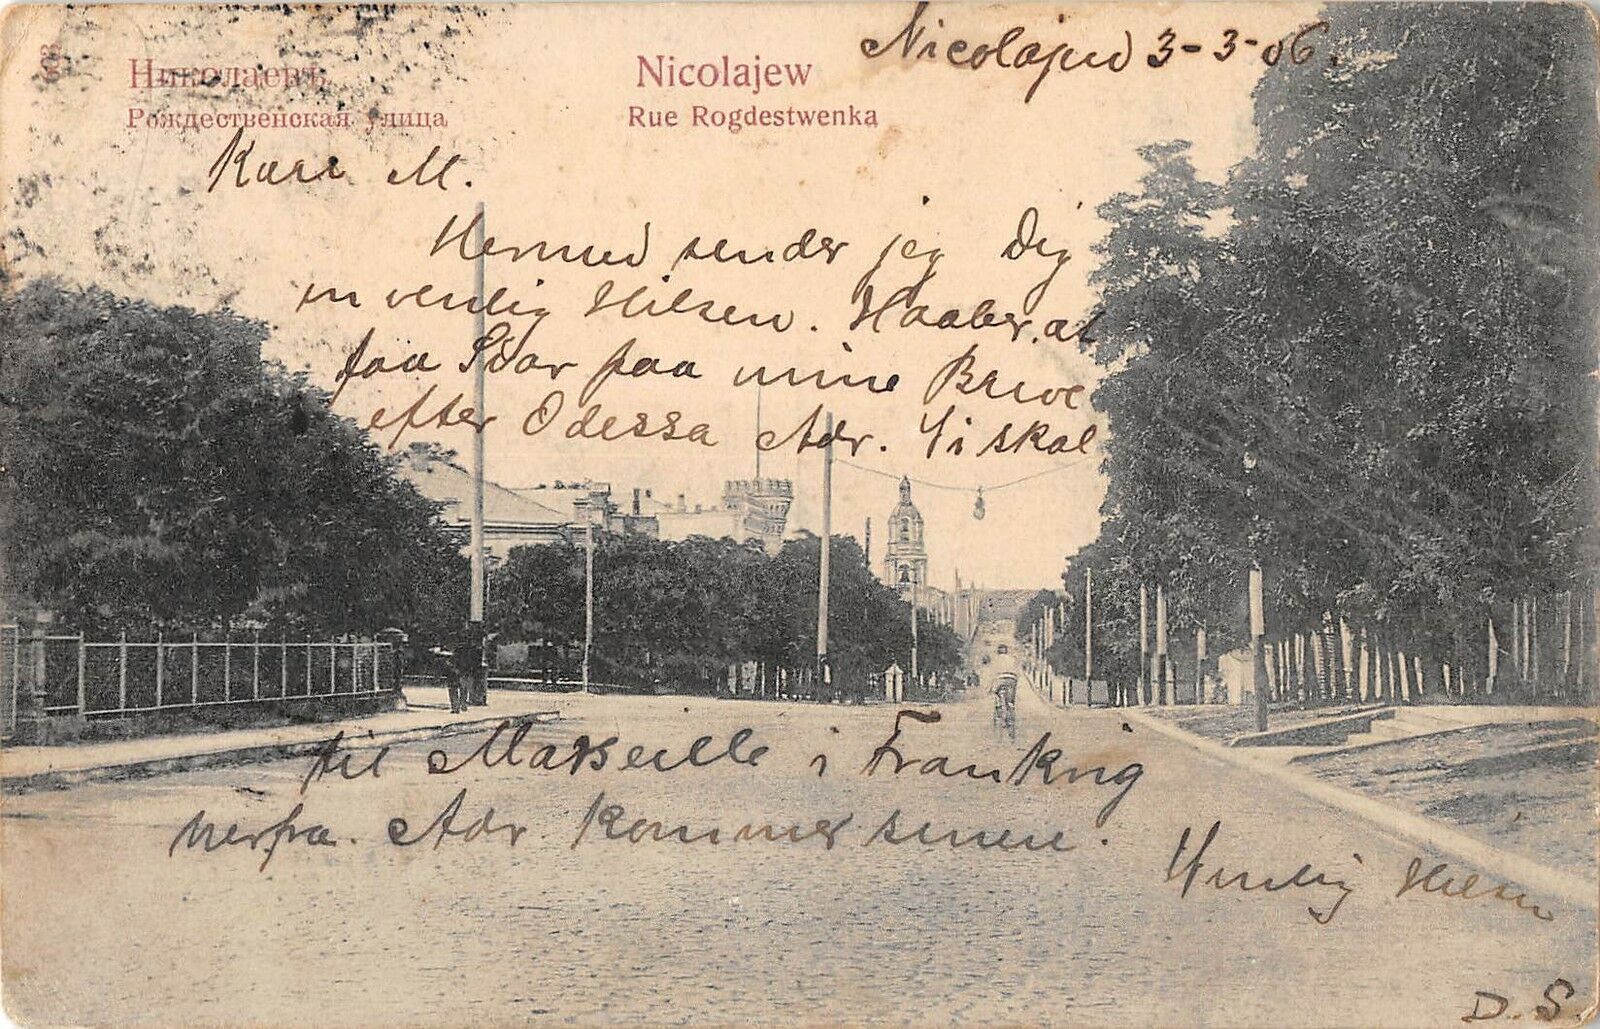 Николаевъ.
Рождественская улица
Nicolajew
Rue Rogdestwenka
3-3-06.
Kære M.
Hermed sender jeg Dig
en venlig Hilsen. Haaber at
faa Svar paa mine Breve
efter Odessa Adr. Vi skal
til Marseille i Frankrig
herfra. Adr. kommer senere.
Venlig Hilsen
D. S.